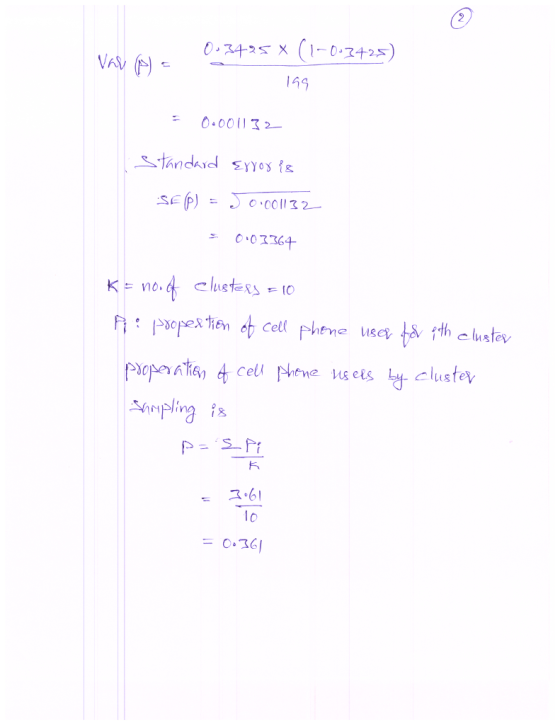 2
Var (p) = 0.3425 × (1-0.3425)
199
= 0.001132
Standard Error is
SE(p) = √0.001132
= 0.03364
K = no. of clusters = 10
Pi : propertion of cell phone user for ith cluster
properation of cell phone users by cluster
Sampling is
P = Σ Pi
K
= 3.61
10
= 0.361